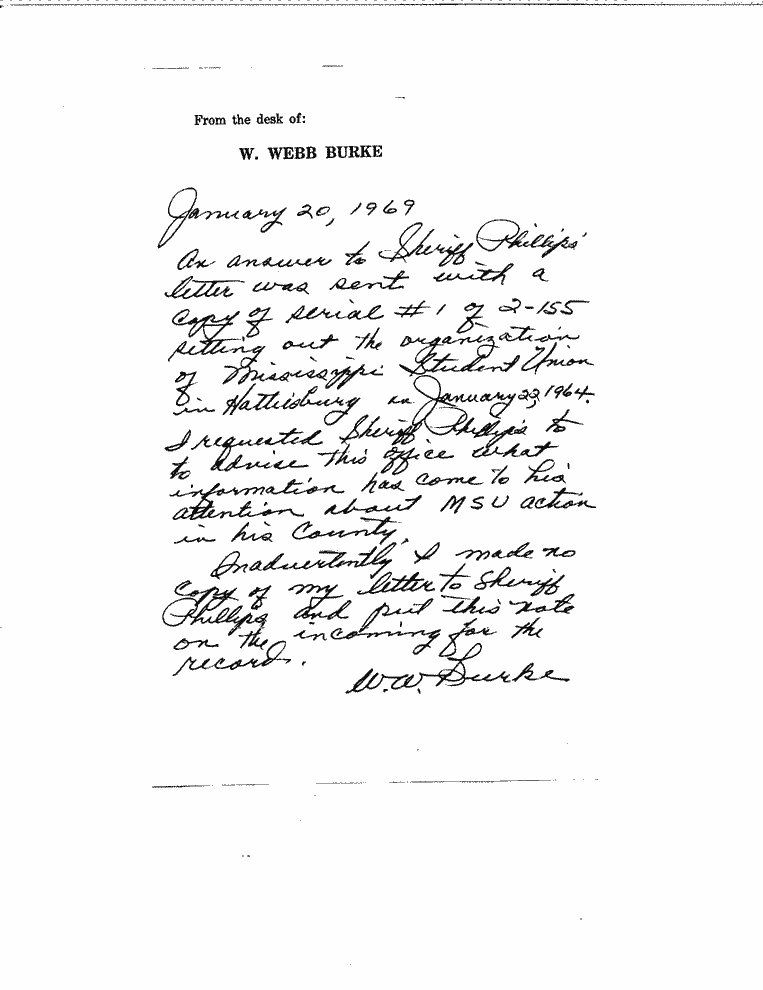 From the desk of:
W. WEBB BURKE
January 20, 1969
An answer to Sheriff Phillips'
letter was sent with a
copy of serial #1 of 2-155
setting out the organization
of Mississippi Student Union
in Hattiesburg on January 23, 1964.
I requested Sheriff Phillips to
to advise this office what
information has come to his
attention about MSU action
in his County.
Inadvertently I made no
copy of my letter to Sheriff
Phillips and put this note
on the incoming for the
record.
W.W. Burke